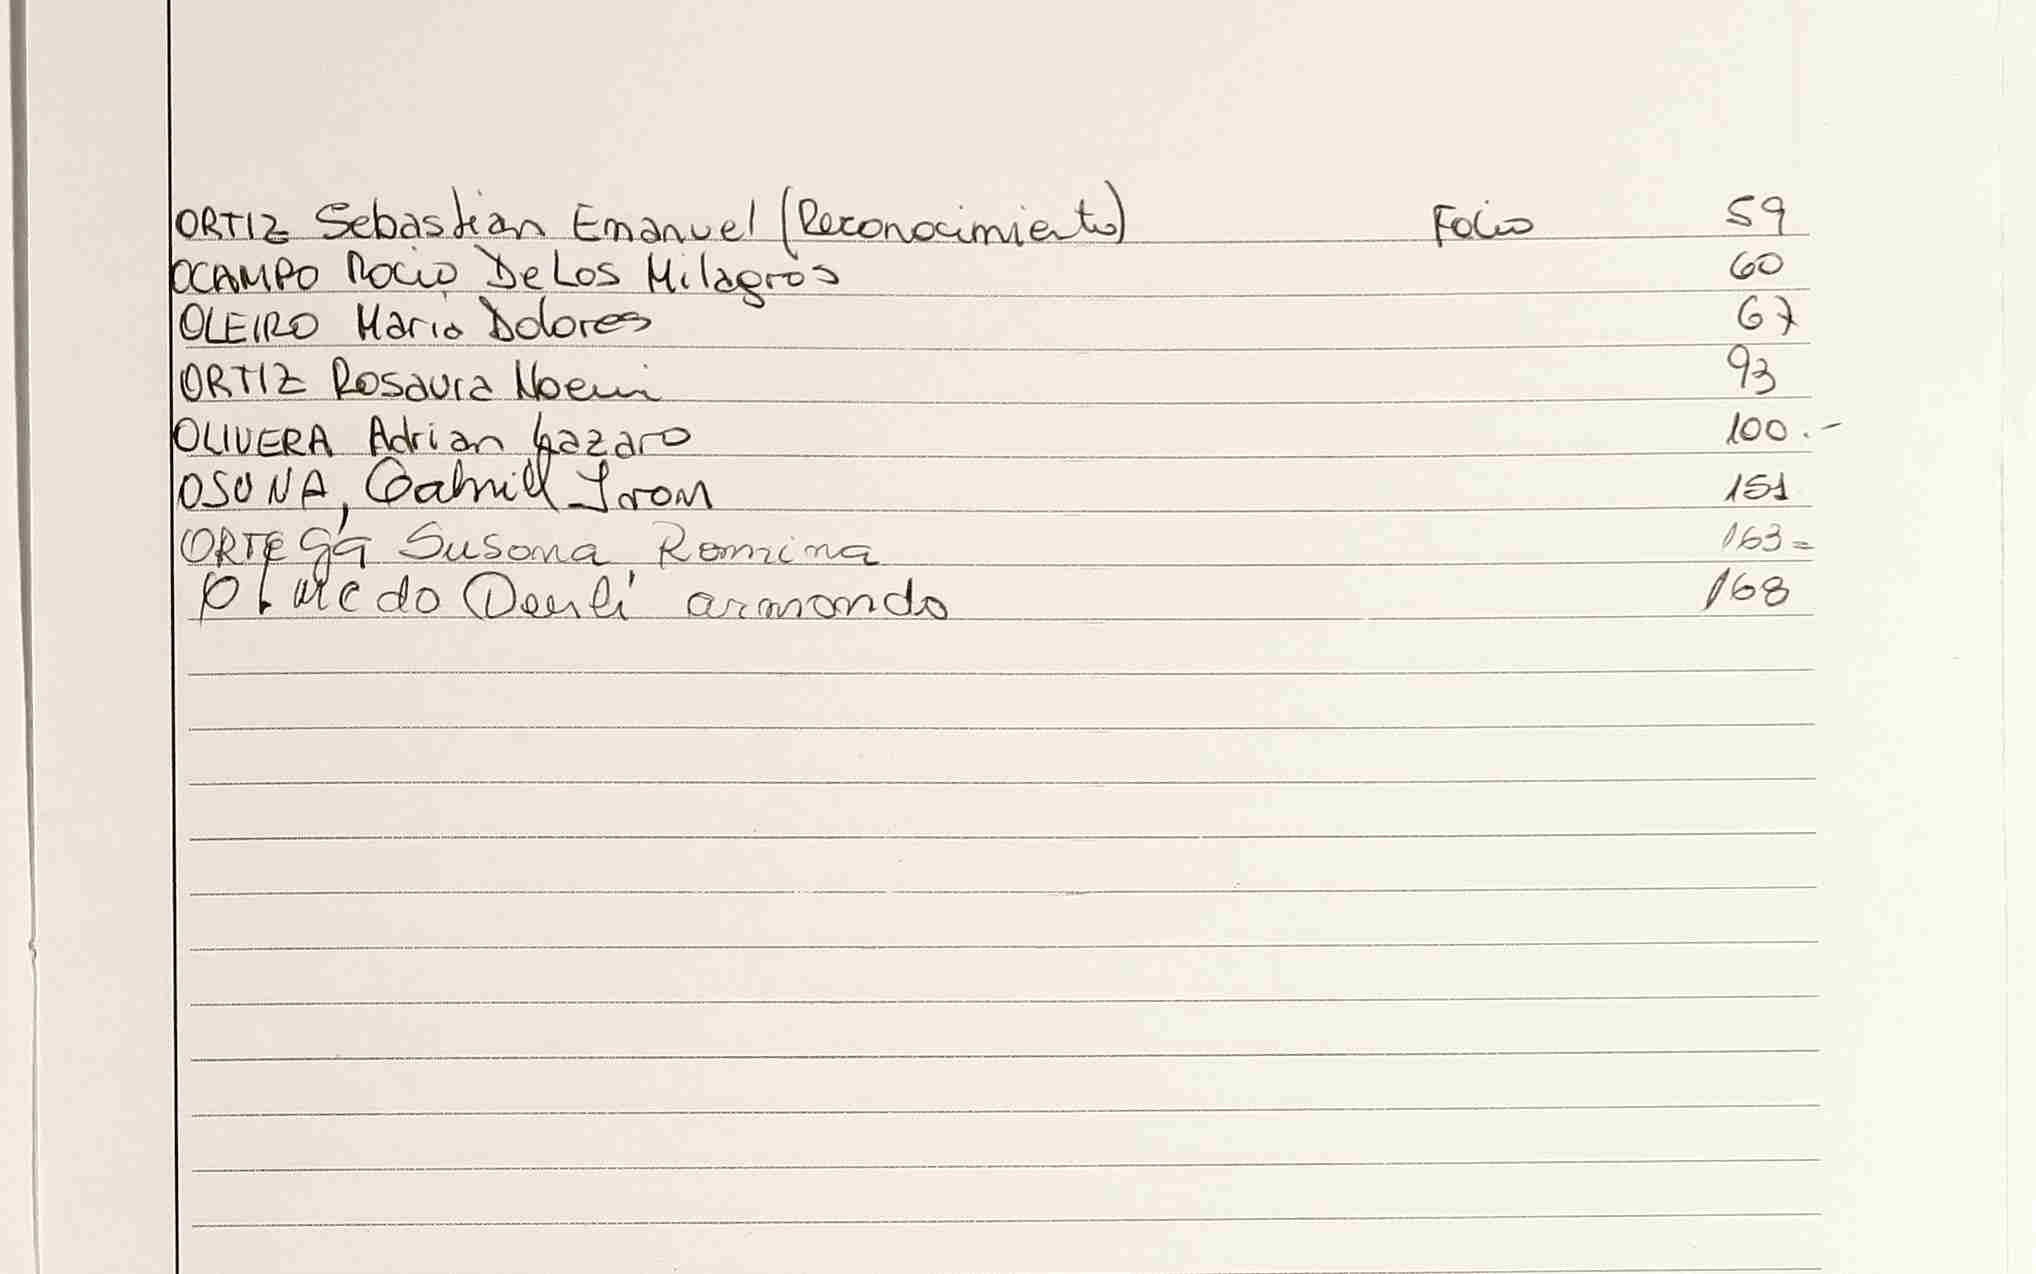 ORTIZ Sebastian Emanuel (Reconocimiento) Folio 59
OCAMPO Rocio De Los Milagros 60
OLEIRO Maria Dolores 67
ORTIZ Rosaura Noemi 93
OLIVERA Adrian Lazaro 100.-
OSUNA, Gabriel 151
ORTEGA Susana Romina 163=
do armando 168